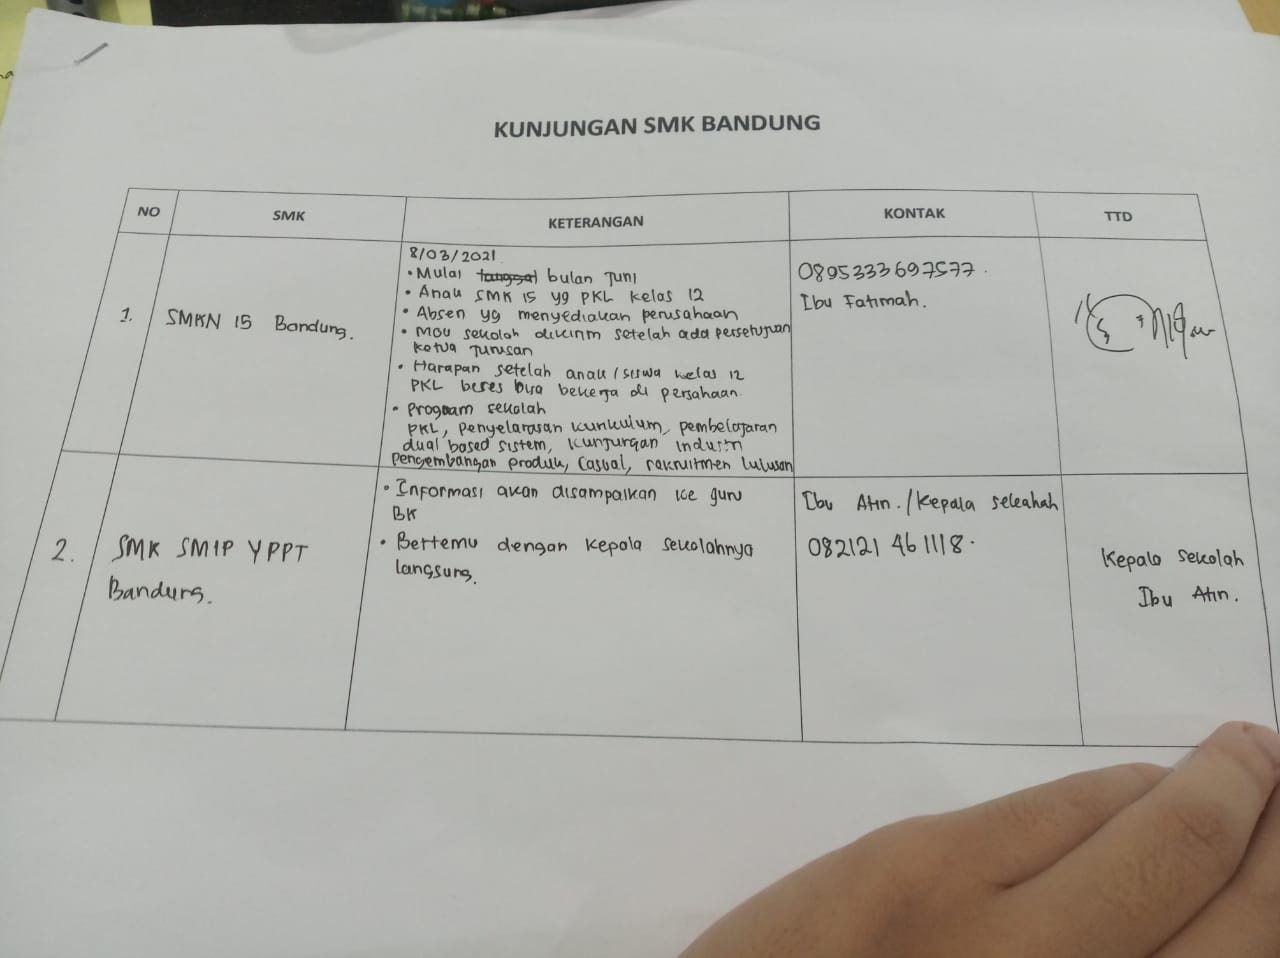 KUNJUNGAN SMK BANDUNG
NO SMK KETERANGAN KONTAK TTD
1. SMKN 15 Bandung.
8/03/2021
• Mulai tanggal bulan Juni
• Anak SMK 15 yg PKL kelas 12
• Absen yg menyediakan perusahaan
• MOU sekolah dikirim setelah ada persetujuan
ketua Jurusan
• Harapan setelah anak/siswa kelas 12
PKL beres bisa bekerja di persahaan.
• Program sekolah
PKL, penyelarasan kurikulum, pembelajaran
dual based sistem, kunjungan Industri
Pengembangan produk, Casual, rakruitmen lulusan
0895333697577.
Ibu Fatimah.
2. SMK SMIP YPPT
Bandung.
• Informasi akan disampaikan ke guru
BK
• Bertemu dengan kepala sekolahnya
langsung.
Ibu Atin./Kepala seleahah
082121 461118.
Kepala sekolah
Ibu Atin.